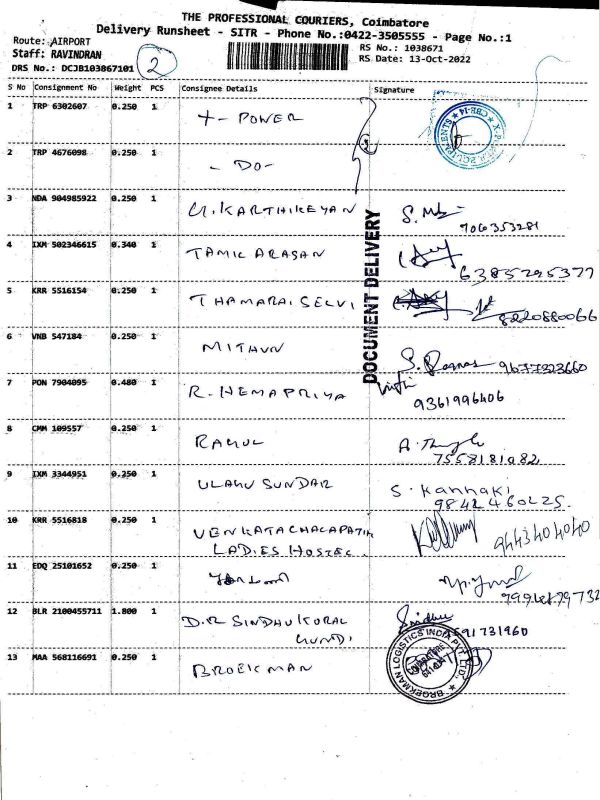 THE PROFESSIONAL COURIERS, Coimbatore
Delivery Runsheet - SITR - Phone No.:0422-3505555 - Page No.:1
Route: AIRPORT
RS No.: 1038671
Staff: RAVINDRAN
RS Date: 13-Oct-2022
DRS No.: DCJB103867101 2
S No Consignment No Weight PCS Consignee Details Signature
1 TRP 6302607 0.250 1 X - POWER
2 TRP 4676098 0.250 1 - DO -
3 NDA 904985922 0.250 1 KARTHIKEYAN
906353281
4 IXM 502346615 0.340 1 TAMIL ARASAN
6385295377
5 KRR 5516154 0.250 1 THAMARAI SELVI
8220880066
6 VNB 547184 0.250 1 MITHUN
9677323660
7 PON 7904095 0.480 1 R. HEMAPRIYA
9361996406
8 CMM 109557 0.250 1 RAHUL
7558181082
9 IXM 3344951 0.250 1 ULAHU SUNDAR S. Kannaki
9842460225.
10 KRR 5516818 0.250 1 VENKATACHALAPATIH
LADIES HOSTEL. 9443404040
11 EDQ 25101652 0.250 1
12 BLR 2100455711 1.800 1 D.R SINDHU KORAL Sindhu
591731960
13 MAA 568116691 0.250 1 BROEKMAN
BROEKMAN LOGISTICS INDIA PVT. LTD.
COIMBATORE
DOCUMENT DELIVERY